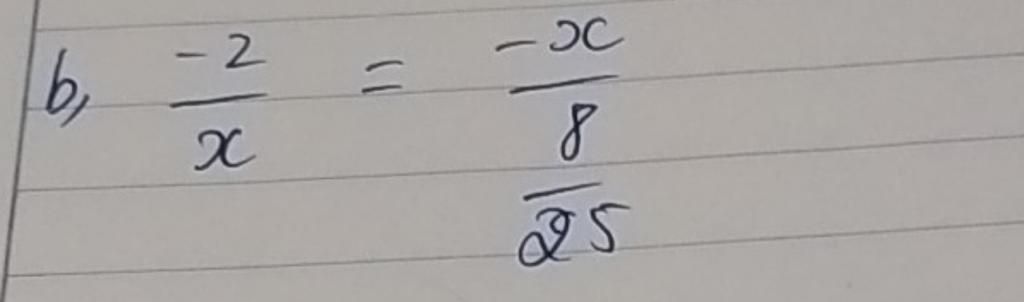 b, -2/x = -x/(8/25)